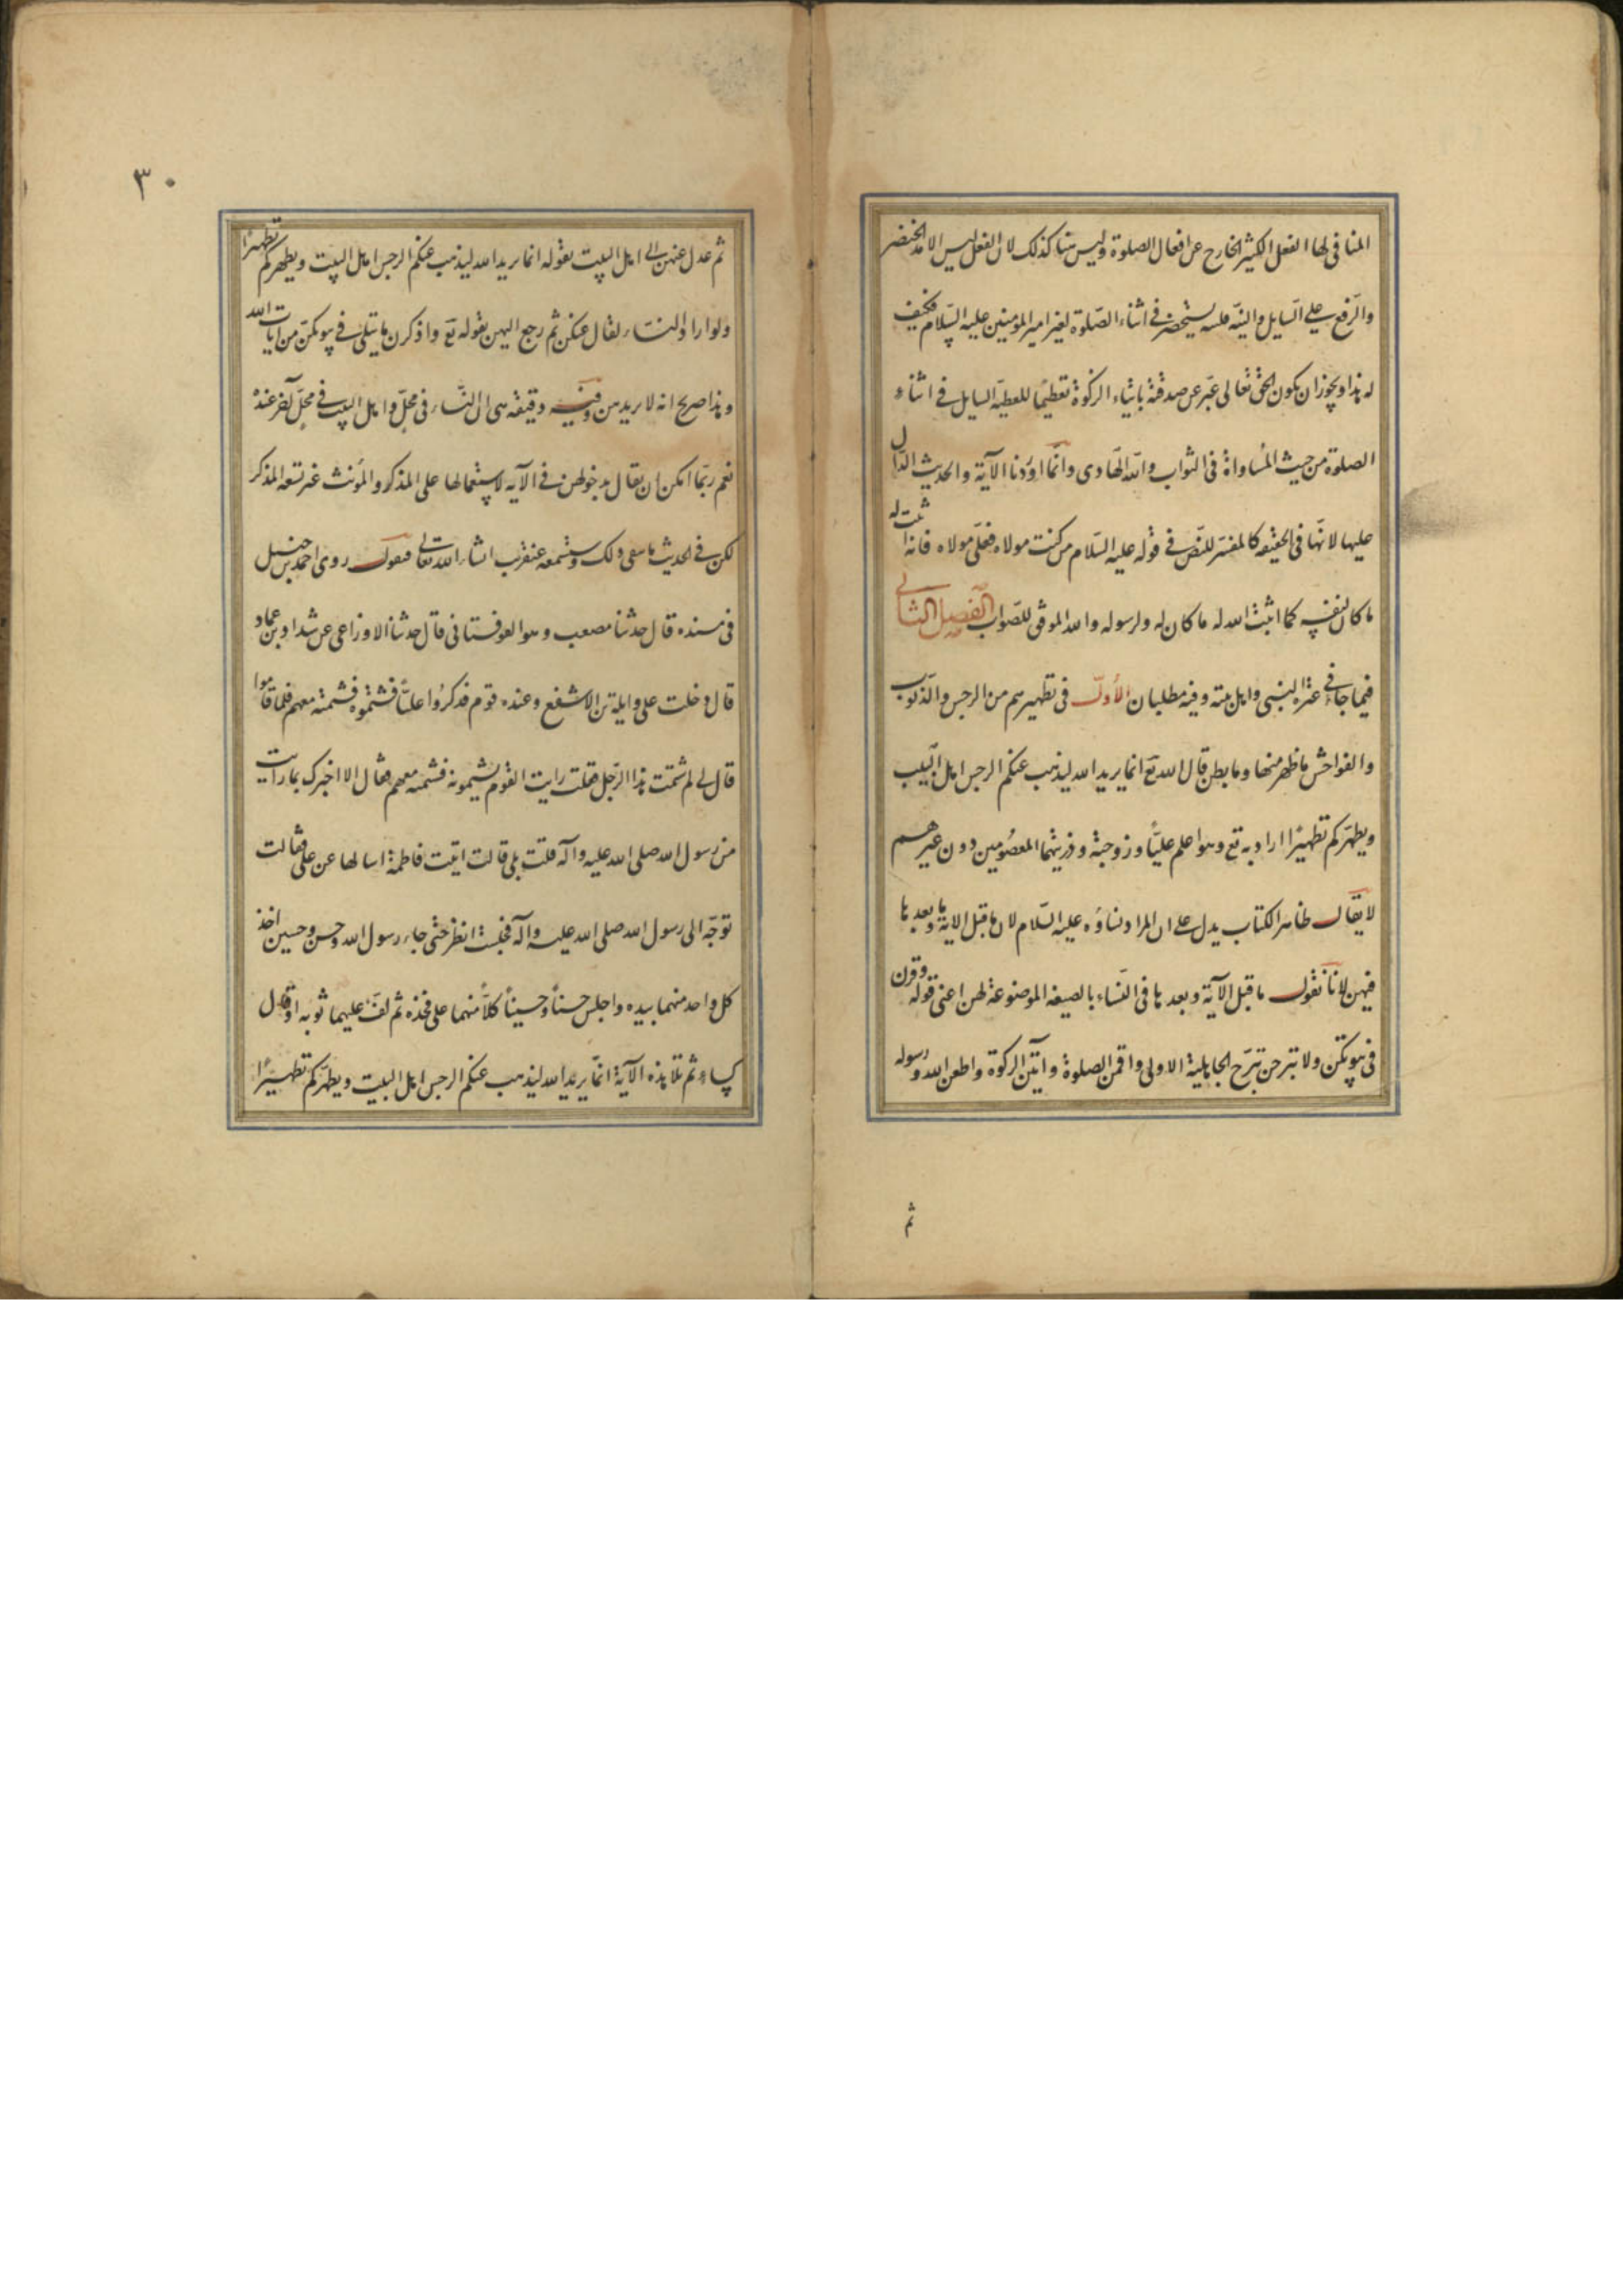 المنافى لها الفعل الكثير الخارج عن افعال الصلوة وليس هنا كذلك لان الفعل ليس الا مد الخنصر
والرفع على السايل والنية فلسه يستحضر فى اثناء الصلوة لغير امير المؤمنين عليه السلام فكيف
له هذا ويجوز ان يكون الحق تعالى عبر عن صدقة بايتاء الزكوة تعظيما للعطية السايل فى اثناء
الصلوة من حيث المساواة فى الثواب والله الهادى وانما اوردنا الآية والحديث الدال
عليها لانها فى الحقيقة كالمفسر للنص فى قوله عليه السلام من كنت مولاه فعلى مولاه فانه اثبت له
ما كان لنفسه كما اثبت الله له ما كان له ولرسوله والله الموفق للصواب الفصل الثانى
فيما جاء فى عترة النبى واهل بيته وفيه مطلبان الأول فى تطهيرهم من الرجس والذنوب
والفواحش ما ظهر منها وما بطن قال الله تع انما يريد الله ليذهب عنكم الرجس اهل البيت
ويطهركم تطهيرا اراد به تع وهو اعلم عليا وزوجته وذريتهما المعصومين دون غيرهم
لا يقال ظاهر الكتاب يدل على ان المراد نساؤه عليه السلام لان ما قبل الاية وما بعدها
فيهن لانا نقول ما قبل الآية وبعدها فى النساء بالصيغة الموضوعة لهن اعنى قوله وقرن
فى بيوتكن ولا تبرجن تبرج الجاهلية الاولى واقمن الصلوة وآتين الزكوة واطعن الله ورسوله
ثم
٣٠
ثم عدل عنهن الى اهل البيت بقوله انما يريد الله ليذهب عنكم الرجس اهل البيت ويطهركم تطهيرا
ولو اراد النساء لقال عنكن ثم رجع اليهن بقوله تع واذكرن ما يتلى فى بيوتكن من آيات الله
وهذا صريح انه لا يريدهن وفيه دقيقة هى ان النساء فى محل واهل البيت فى محل آخر عنده
نعم ربما امكن ان يقال بدخولهن فى الآية لاستعمالها على المذكر والمؤنث غير تسعه المذكر
لكن فى الحديث ما ينفى ذلك وستسمعه عنقريب انشاء الله تعالى فنقول روى احمد بن حنبل
فى مسنده قال حدثنا مصعب وهو العوفستانى قال حدثنا الاوزاعى عن شداد بن عماد
قال دخلت على وايلة بن الاشفع وعنده قوم فذكروا عليا فشتموه فشتمته معهم فلما قاموا
قال لى لم شتمت هذا الرجل فقلت رايت القوم يشتمونه فشتمته معهم فقال الا اخبرك بما رايت
من رسول الله صلى الله عليه وآله قلت بلى قالت اتيت فاطمة اسالها عن على فقالت
توجه الى رسول الله صلى الله عليه وآله فجلست انظر حتى جاء رسول الله وحسن وحسين اخذ
كل واحد منهما بيده واجلس حسنا وحسينا كلا منهما على فخذه ثم لف عليهما ثوبه او قال
كساء ثم تلا هذه الآية انما يريد الله ليذهب عنكم الرجس اهل البيت ويطهركم تطهيرا